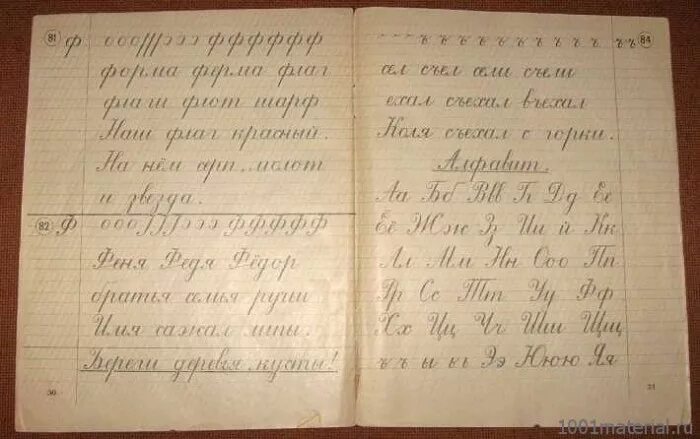 81 ф ооо ȷȷȷ эээ ф ф ф ф ф ф
форма ферма флаг
флаги флот шарф
Наш флаг красный.
На нём серп, молот
и звезда.
82 Ф ооо ȷȷȷ эээ Ф Ф Ф Ф Ф
Феня Федя Фёдор
братья семья ручьи
Илья сажал липы.
Береги деревья, кусты!
30
ъ ъ ъ ъ ъ ъ ъ ъ ъ ъ ъ 84
сел съел сели съели
ехал съехал въехал
Коля съехал с горки.
Алфавит.
Аа Бб Ввв Гг Дд Ее
Её Жж Зз Ии й Кк
Лл Мм Нн Ооо Пп
Рр Сс Тт Уу Фф
Хх Цц Чч Шш Щщ
ъ ъ ы ь ь Ээ Ююю Яя
31
1001material.ru